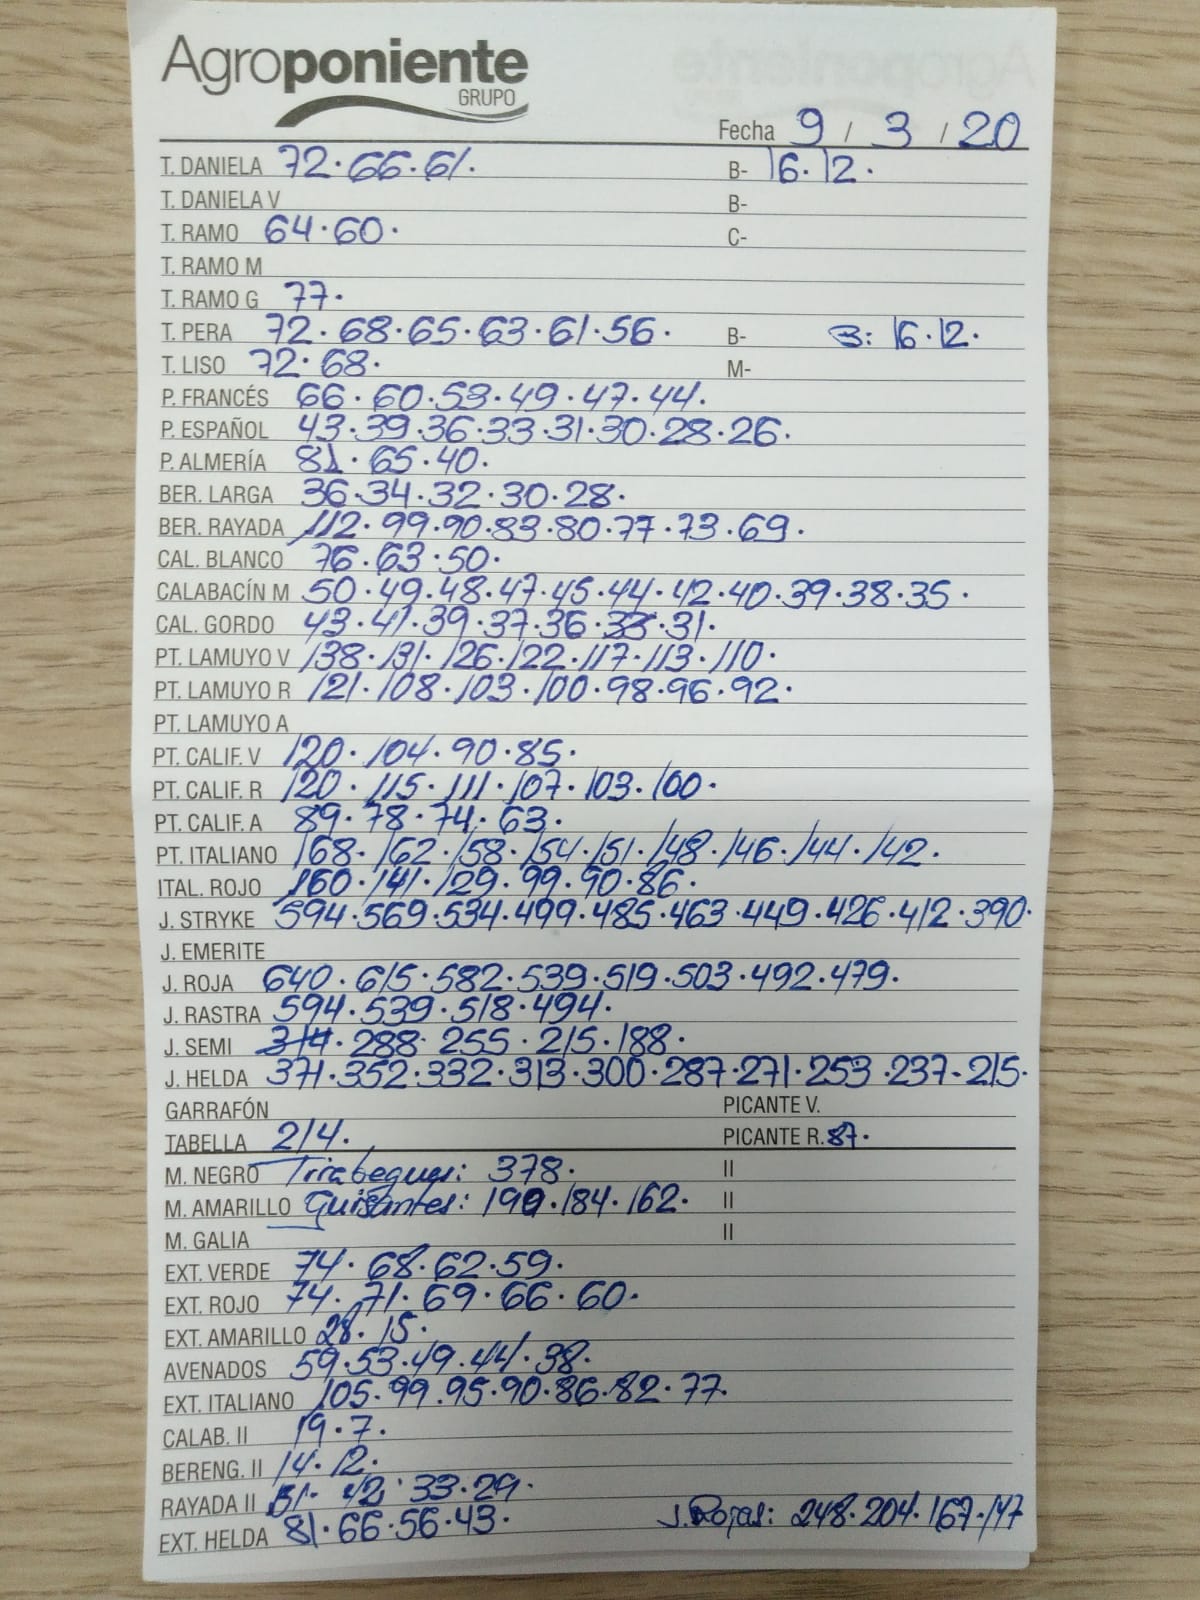 Agroponiente
GRUPO
Fecha 9 / 3 / 20
T. DANIELA 72·66·61· B- 16·12·
T. DANIELA V B-
T. RAMO 64·60· C-
T. RAMO M
T. RAMO G 77·
T. PERA 72·68·65·63·61·56· B- B: 16·12·
T. LISO 72·68· M-
P. FRANCÉS 66·60·53·49·47·44·
P. ESPAÑOL 43·39·36·33·31·30·28·26·
P. ALMERÍA 81·65·40·
BER. LARGA 36·34·32·30·28·
BER. RAYADA 112·99·90·83·80·77·73·69·
CAL. BLANCO 76·63·50·
CALABACÍN M 50·49·48·47·45·44·42·40·39·38·35·
CAL. GORDO 43·41·39·37·36·33·31·
PT. LAMUYO V 138·131·126·122·117·113·110·
PT. LAMUYO R 121·108·103·100·98·96·92·
PT. LAMUYO A
PT. CALIF. V 120·104·90·85·
PT. CALIF. R 120·115·111·107·103·100·
PT. CALIF. A 89·78·74·63·
PT. ITALIANO 168·162·158·154·151·148·146·144·142·
ITAL. ROJO 160·141·129·99·90·86·
J. STRYKE 594·569·534·499·485·463·449·426·412·390·
J. EMERITE
J. ROJA 640·615·582·539·519·503·492·479·
J. RASTRA 594·539·518·494·
J. SEMI 314·288·255·215·188·
J. HELDA 371·352·332·313·300·287·271·253·237·215·
GARRAFÓN PICANTE V.
TABELLA 214· PICANTE R. 87·
M. NEGRO Tirabeques: 378· II
M. AMARILLO Guisantes: 190·184·162· II
M. GALIA II
EXT. VERDE 74·68·62·59·
EXT. ROJO 74·71·69·66·60·
EXT. AMARILLO 28·15·
AVENADOS 59·53·49·44·38·
EXT. ITALIANO 105·99·95·90·86·82·77·
CALAB. II 19·7·
BERENG. II 14·12·
RAYADA II 51·42·33·29·
EXT. HELDA 81·66·56·43· J. Rojas: 248·204·167·147